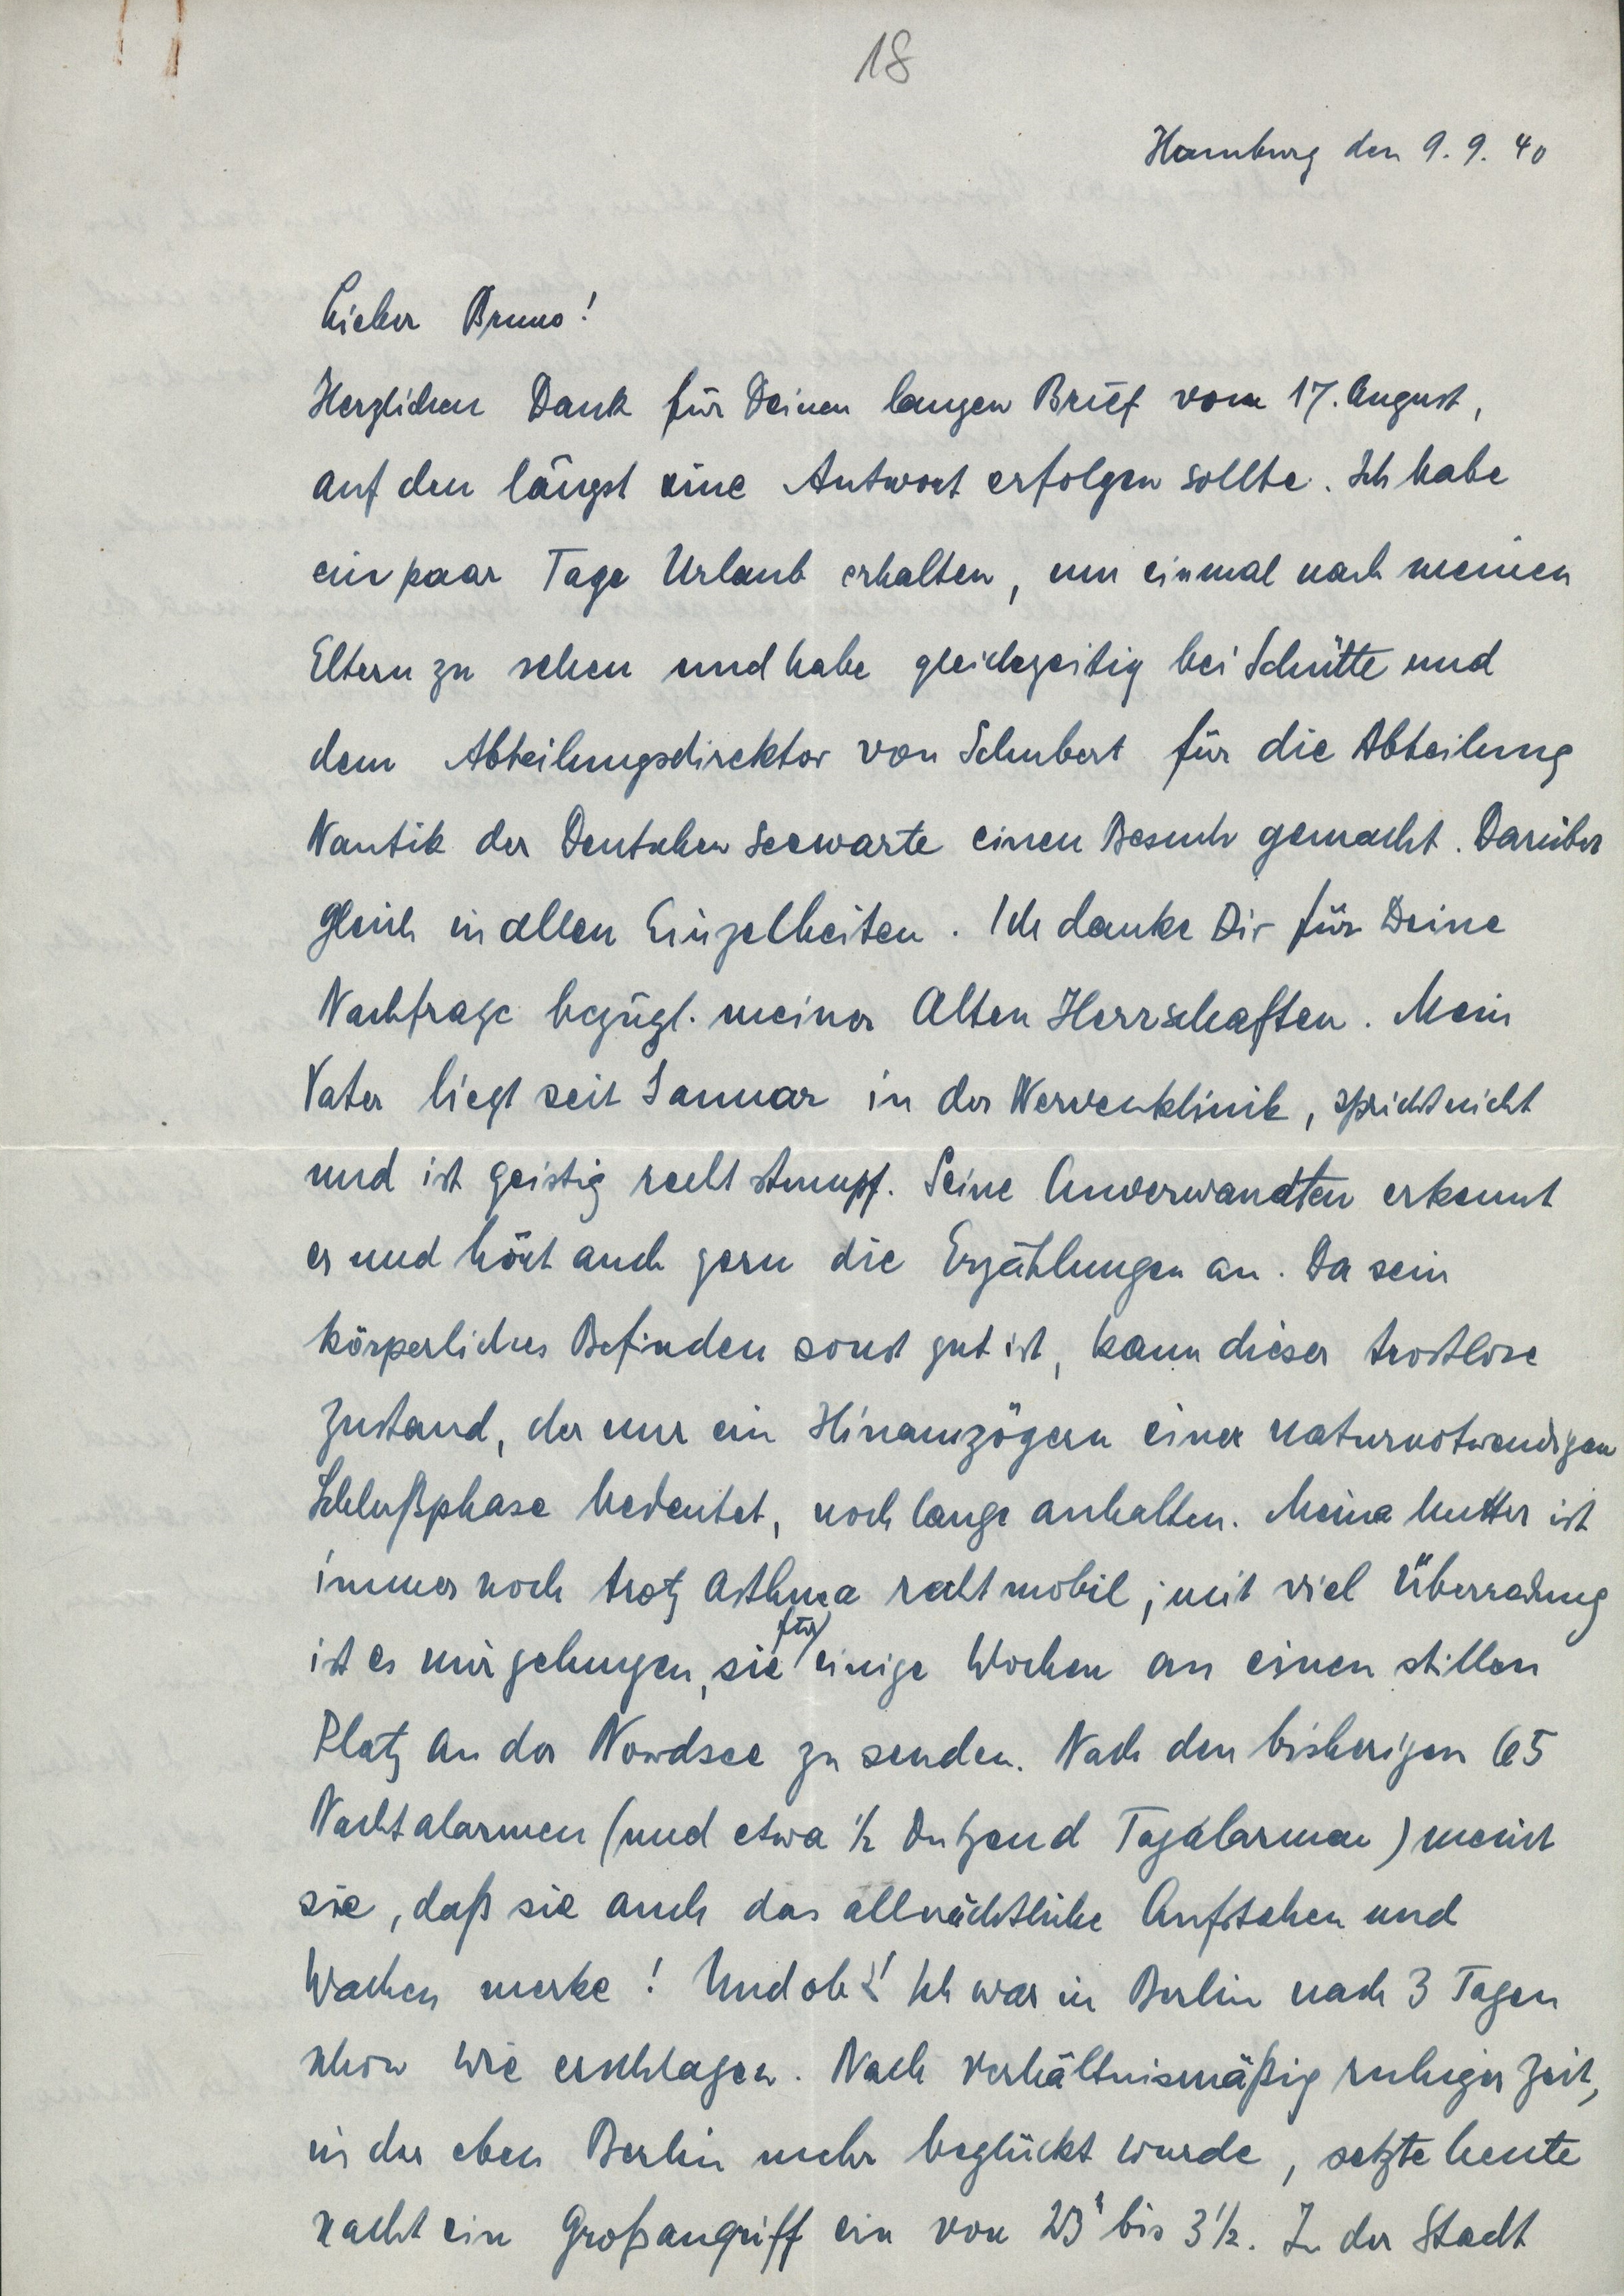 18
Hamburg den 9.9.40
Lieber Bruno!
Herzlichen Dank für Deinen langen Brief vom 17. August,
auf den längst eine Antwort erfolgen sollte. Ich habe
ein paar Tage Urlaub erhalten, um einmal nach meinen
Eltern zu sehen und habe gleichzeitig bei Schütte und
dem Abteilungsdirektor von Schubert für die Abteilung
Nautik der Deutschen Seewarte einen Besuch gemacht. Darüber
gleich in allen Einzelheiten. Ich danke Dir für Deine
Nachfrage bezügl. meiner Alten Herrschaften. Mein
Vater liegt seit Januar in der Nervenklinik, spricht nicht
und ist geistig recht stumpf. Seine Anverwandten erkennt
er und hört auch gern die Erzählungen an. Da sein
körperliches Befinden sonst gut ist, kann dieser trostlose
Zustand, der nur ein Hinauszögern einer naturnotwendigen
Schlußphase bedeutet, noch lange anhalten. Meine Mutter ist
immer noch trotz Asthma recht mobil; mit viel Überredung
ist es mir gelungen, sie für einige Wochen an einen stillen
Platz an der Nordsee zu senden. Nach den bisherigen 65
Nachtalarmen (und etwa ½ Dutzend Tagalarmen) meint
sie, daß sie auch das allnächtliche Aufstehen und
Wachen merke! Und ob! Ich war in Berlin nach 3 Tagen
schon wie erschlagen. Nach verhältnismäßig ruhiger Zeit,
in der eben Berlin mehr beglückt wurde, setzte heute
nacht ein Großangriff ein von 23 bis 3½. In der Stadt